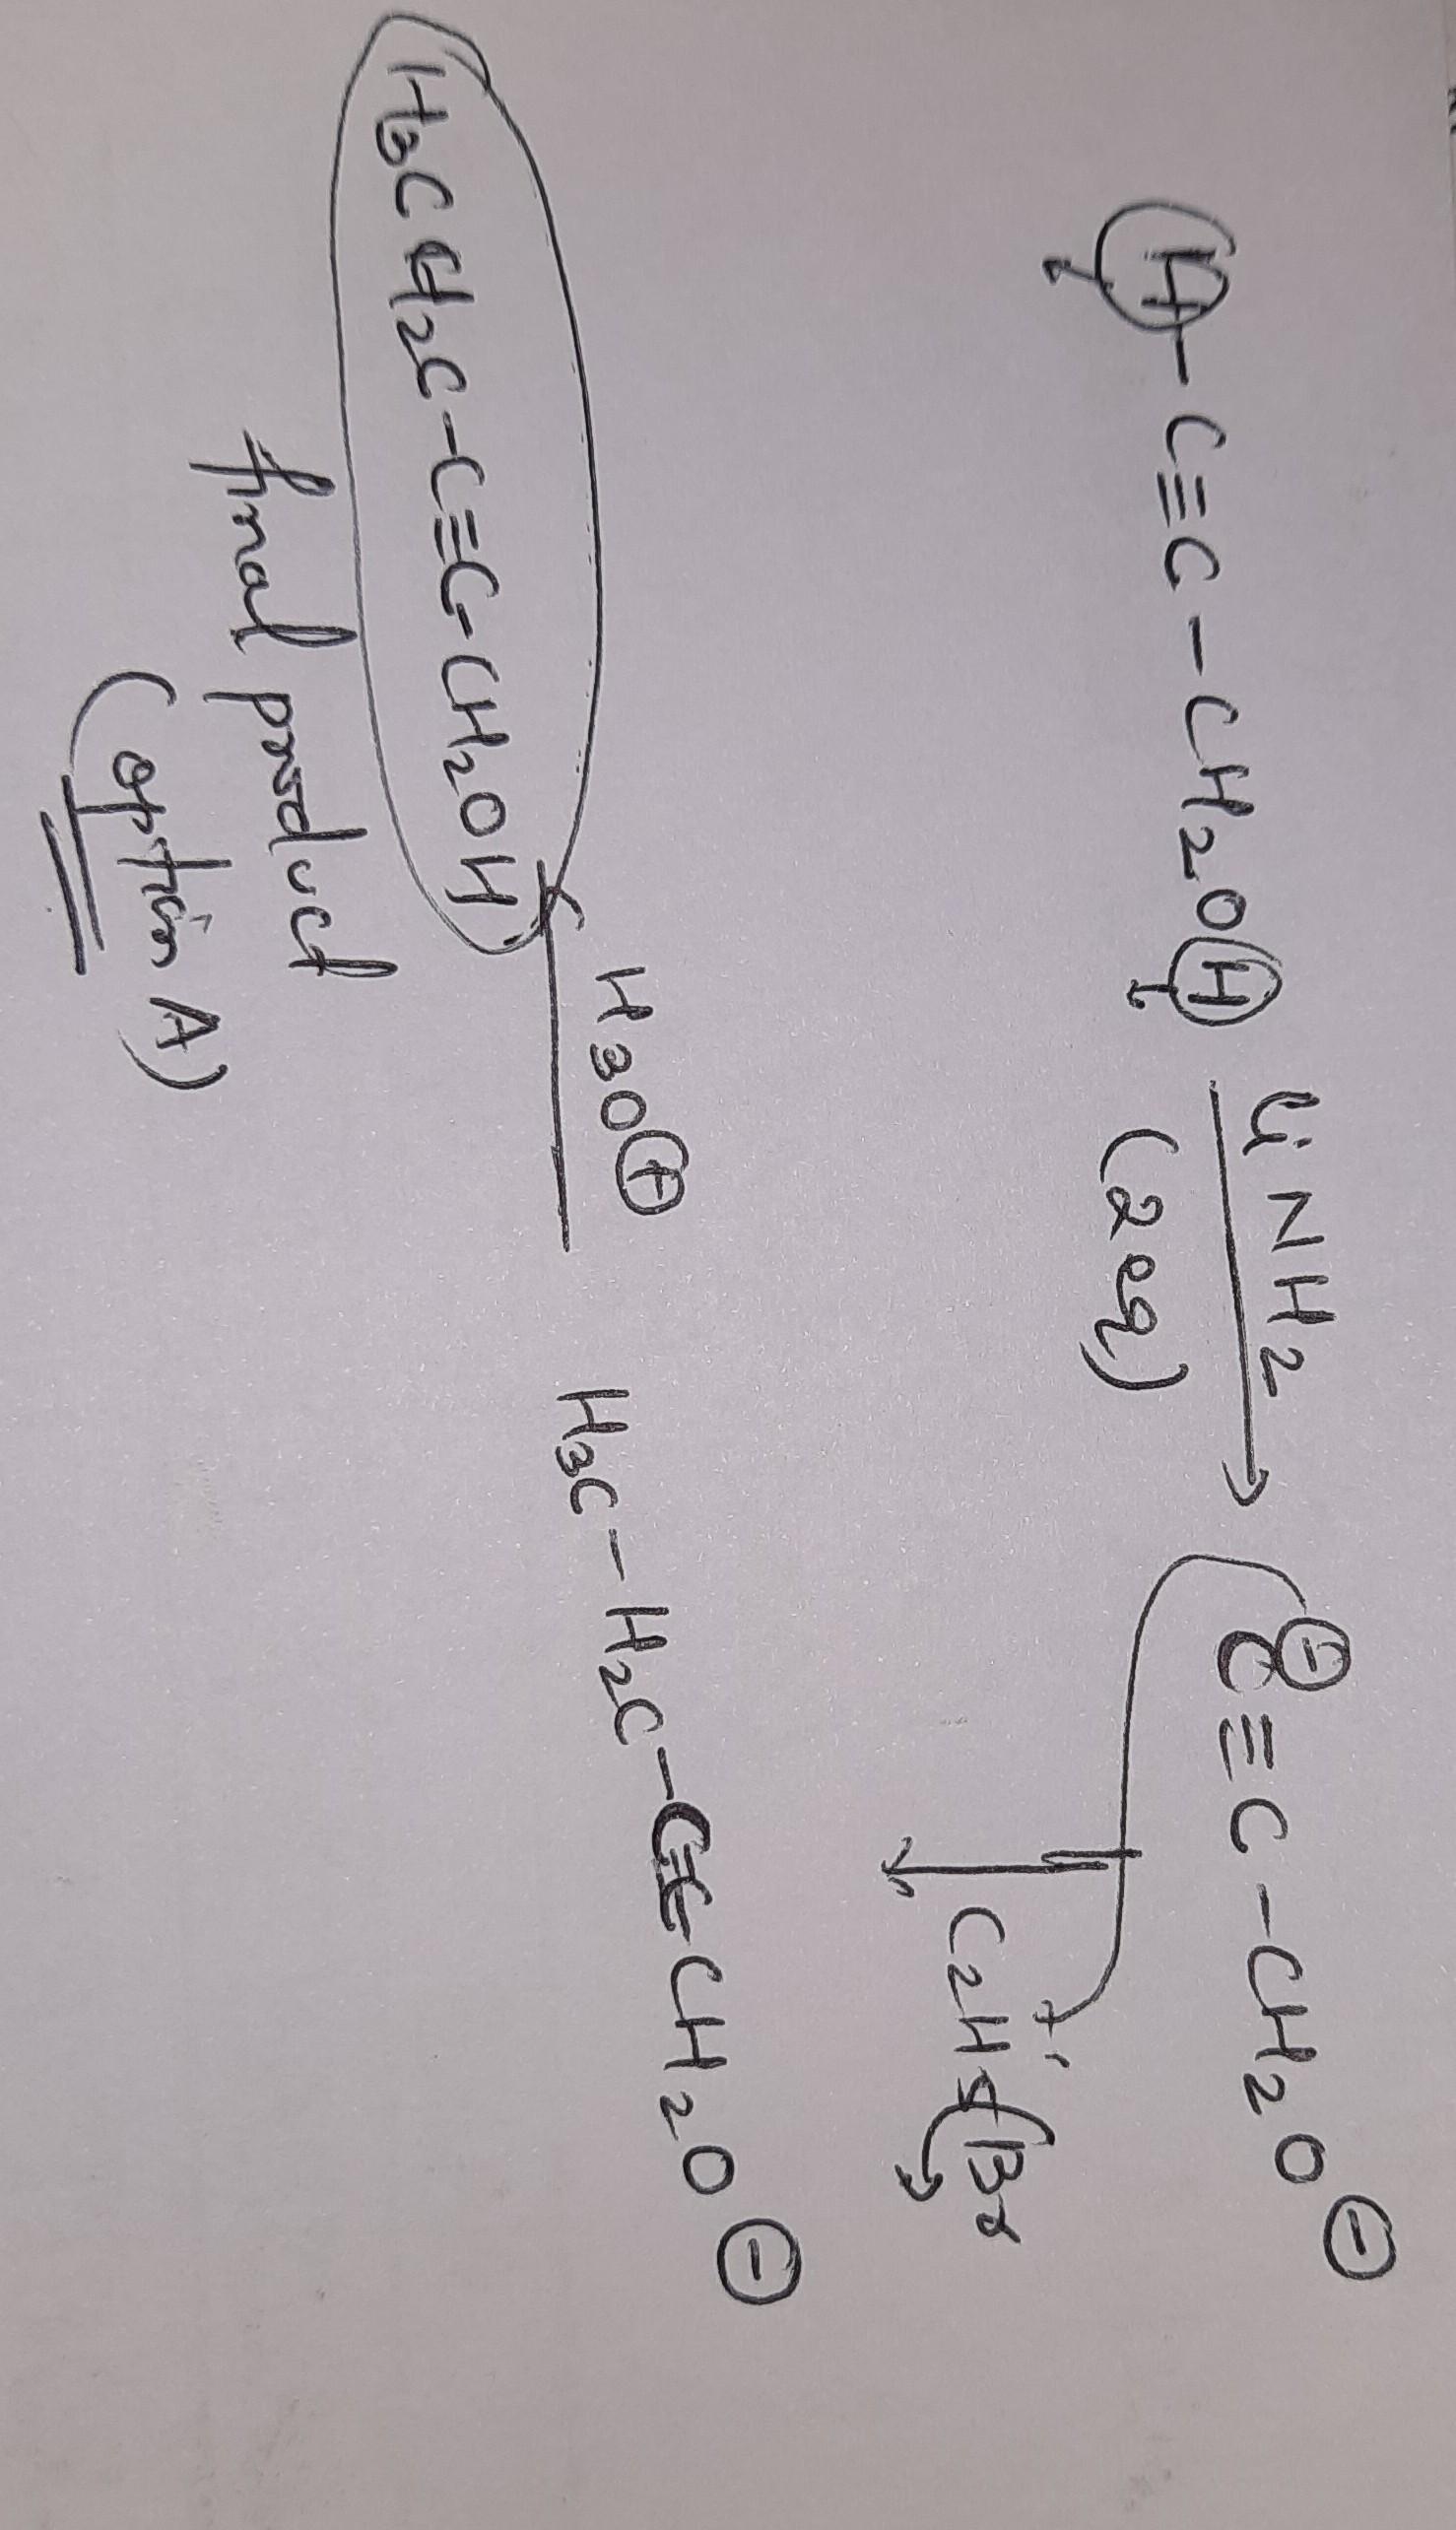 H-C≡C-CH2OH LiNH2 (2eq) ⊖C≡C-CH2O⊖
C2H5Br
H3C-H2C-C≡C-CH2O⊖
H3O⊕
H3CH2C-C≡C-CH2OH
final product
(option A)